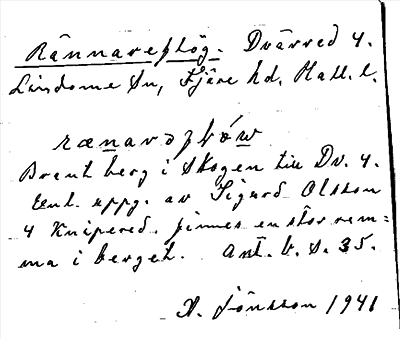 Rännareflög. Dvärred 4.
Lindome Sn, Fjäre hd. Hall. l.
Brant berg i skogen till Dv. 4.
Enl. uppg. av Sigurd Olsson
4 Knipered. finnes en stor rem=
na i berget. Ant. b. s. 35.
A. Jönsson 1941